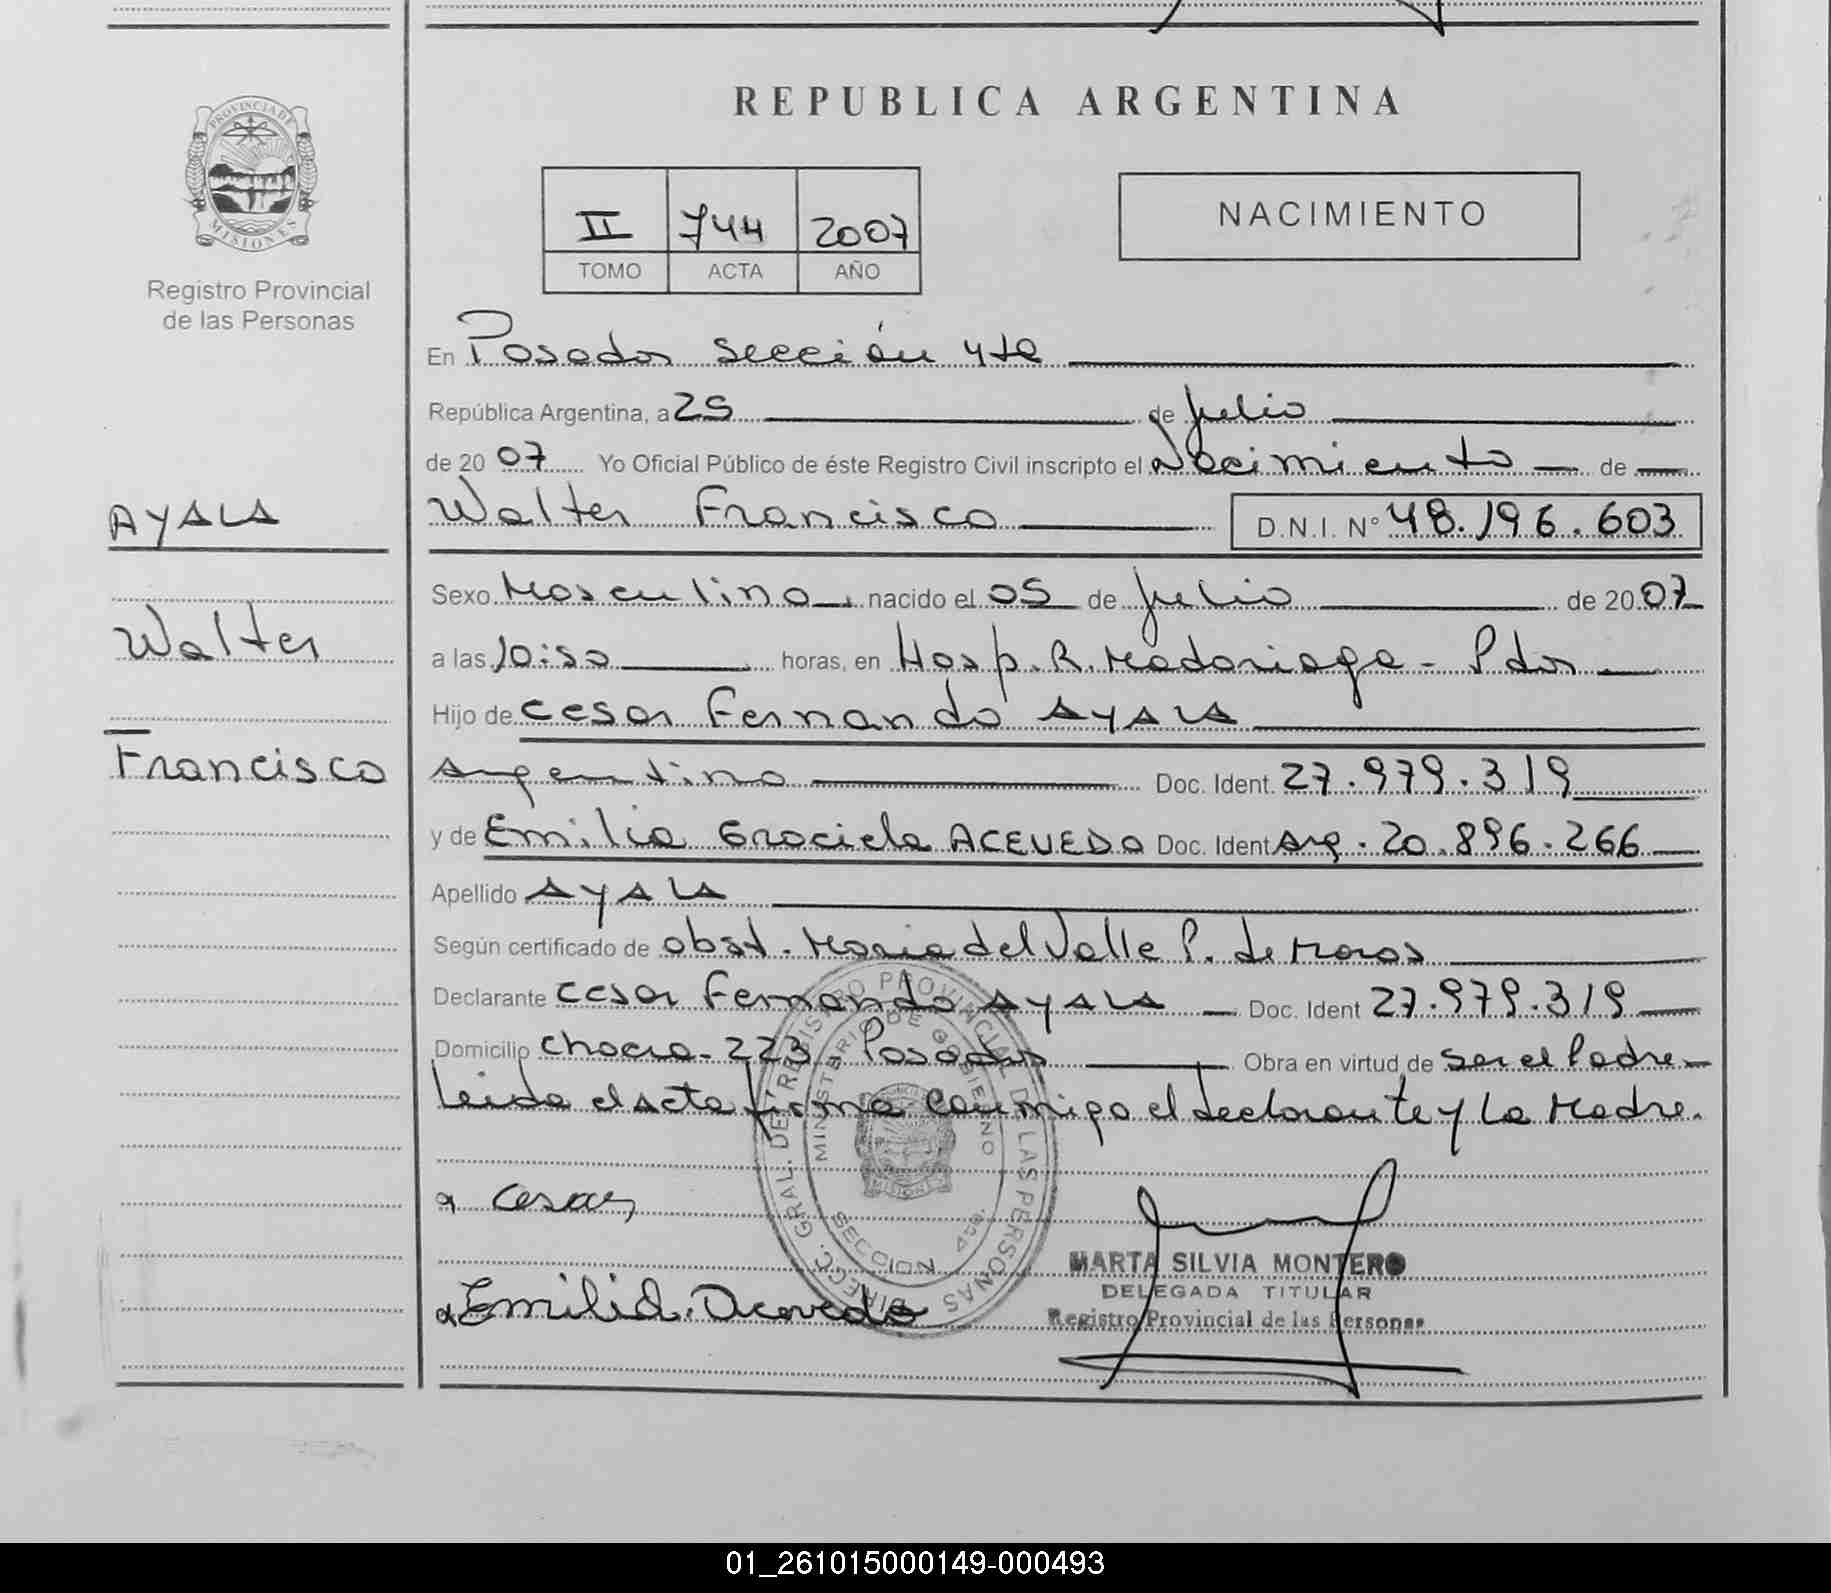 REPUBLICA ARGENTINA
PROVINCIA DE
MISIONES
Registro Provincial
de las Personas
II 744 2007
TOMO ACTA AÑO
NACIMIENTO
En Posadas sección 4ta
República Argentina, a 25 de Julio
de 20 07 Yo Oficial Público de éste Registro Civil inscripto el Nacimiento de
AYALA
Walter Francisco D.N.I. N° 48.196.603
Sexo Masculino nacido el 05 de Julio de 20 07
Walter
a las 10:50 horas, en Hosp. R. Madariaga - Pdas
Hijo de Cesar Fernando AYALA
Francisco
Argentino Doc. Ident. 27.979.319
y de Emilia Graciela ACEVEDO Doc. Ident Arg. 20.896.266
Apellido AYALA
Según certificado de obst. Maria del Valle P. de
Declarante Cesar Fernando AYALA Doc. Ident 27.979.319
Domicilio Chacra - 223 Posadas Obra en virtud de ser el Padre
Leida el acta firma conmigo el declarante y la Madre.
DIRECC. GRAL. DEL REGISTRO PROVINCIAL DE LAS PERSONAS
MINISTERIO DE GOBIERNO
MISIONES
SECCION 4ta.
Cesar
Emilia. Acevedo
MARTA SILVIA MONTERO
DELEGADA TITULAR
Registro Provincial de las Personas
01_261015000149-000493